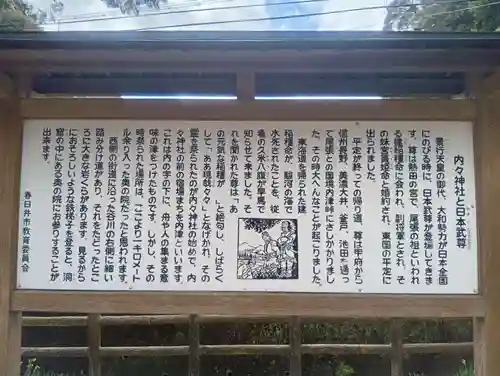 内々神社と日本武尊
景行天皇の御代、大和勢力が日本全国
にのびる時に、日本武尊が登場してきま
す。尊は熱田で、尾張の祖といわれ
る建稲種命に会われ、副将軍とされ、そ
の妹宮簀姫命と婚約され、東国の平定に
出られました。
平定が終っての帰り道、尊は甲府から
信州長野、美濃大井、釜戸、池田を通っ
て尾張との国境内津峠にさしかかりまし
た。その時大へんなことが起こりました。
東海道を帰られた建
稲種命が、駿河の海で
水死されたことを、従
者の久米八腹が早馬で
知らせて来ました。そ
れを聞かれた尊は「あ
の元気な稲種が……」と絶句し、しばらく
して「ああ現哉々々」となげかれ、その
霊を祭られたのが内々神社の始めで、内
々神社の前の宿場まちを内津といいます。
これは内の字の下に、舟や人の集まる意
味の津をつけたものです。しかし、その
時祭られた場所は、ここより一キロメート
ル余り入った奥の院だったと思われます。
西側の街道に沿った谷川の右側に細い
踏み分け道があり、それをたどったとこ
ろに大きな岩があります。見るから
におそろしいような鉄梯子を登ると、洞
窟の中にある奥の院にお参りすることが
出来ます。
春日井市教育委員会